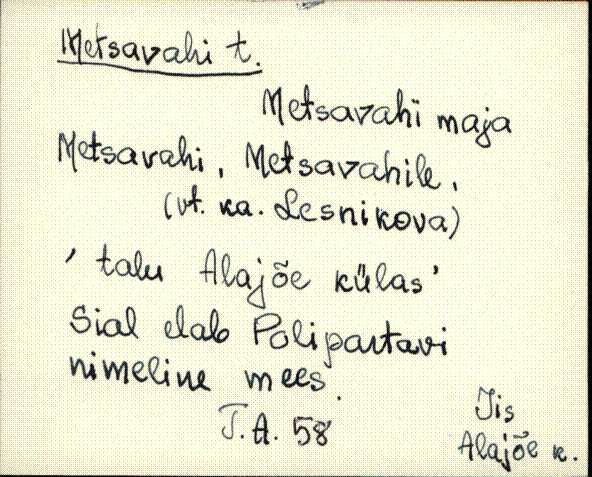 Metsavahi t.
Metsavahi maja
Metsavahi, Metsavahile,
(vt. ka. Lesnikova)
' talu Alajõe külas'
Sial elab Polipartavi
nimeline mees.
T.A. 58
Iis
Alajõe k.